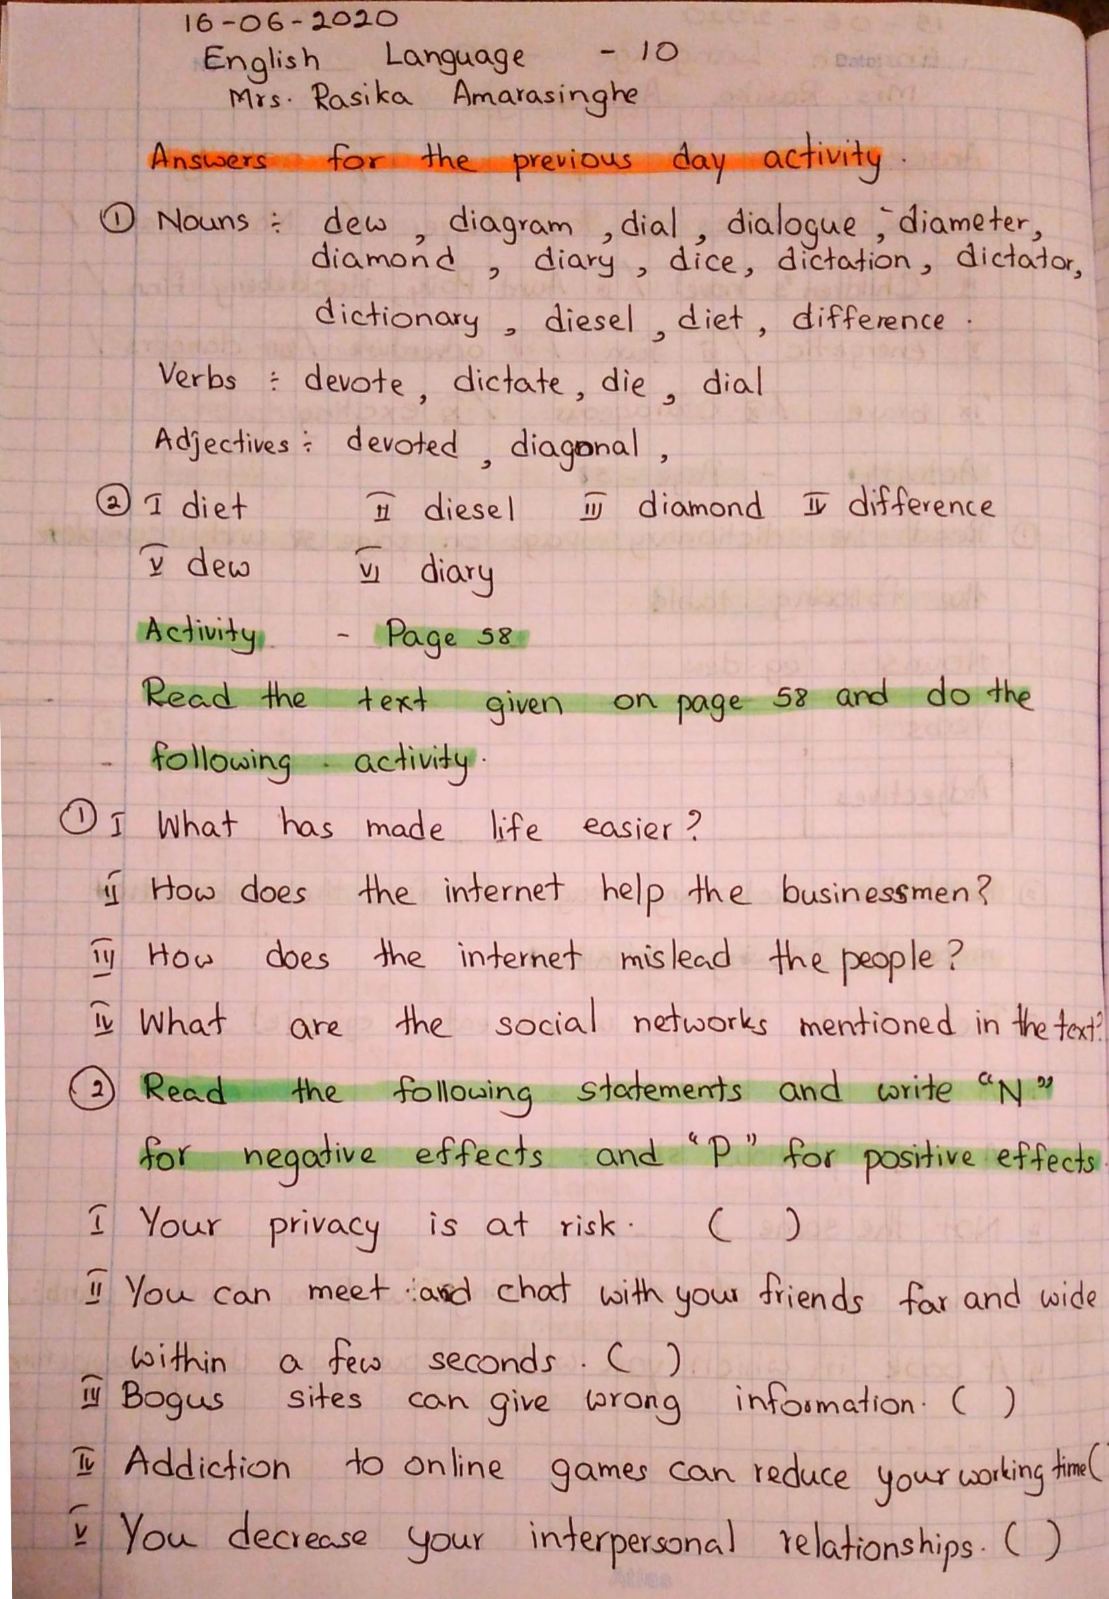 16-06-2020
English Language - 10
Mrs. Rasika Amarasinghe
Answers for the previous day activity.
① Nouns ÷ dew, diagram, dial, dialogue, diameter,
diamond, diary, dice, dictation, dictator,
dictionary, diesel, diet, difference.
Verbs ÷ devote, dictate, die, dial
Adjectives ÷ devoted, diagonal,
② I diet II diesel III diamond IV difference
V dew VI diary
Activity - Page 58
Read the text given on page 58 and do the
following activity.
① I What has made life easier?
II How does the internet help the businessmen?
III How does the internet mislead the people?
IV What are the social networks mentioned in the text?
② Read the following statements and write "N"
for negative effects and "P" for positive effects.
I Your privacy is at risk. ( )
II You can meet and chat with your friends far and wide
within a few seconds. ( )
III Bogus sites can give wrong information. ( )
IV Addiction to online games can reduce your working time (
V You decrease your interpersonal relationships. ( )